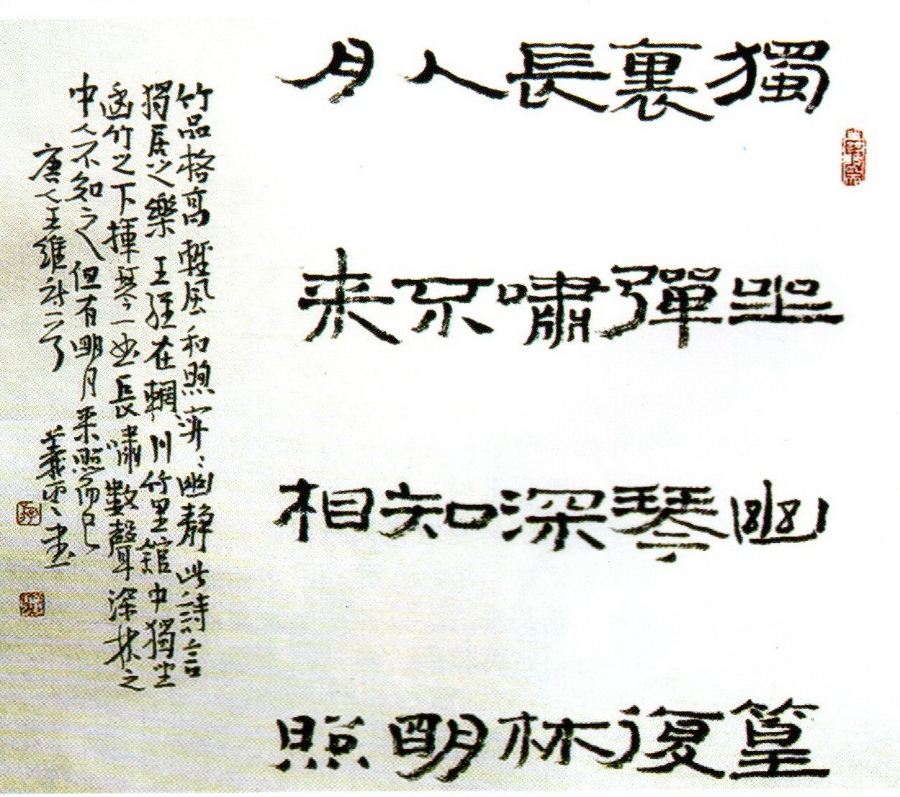 獨坐幽篁
裏彈琴復
長嘯深林
人不知明
月来相照
竹品格高輕風和煦幽靜此詩言
獨居之樂王維在輞川竹里館中獨坐
幽竹之下揮琴一曲長嘯數聲深林之
中人不知之但有明月来照而已
唐人王維詩 書